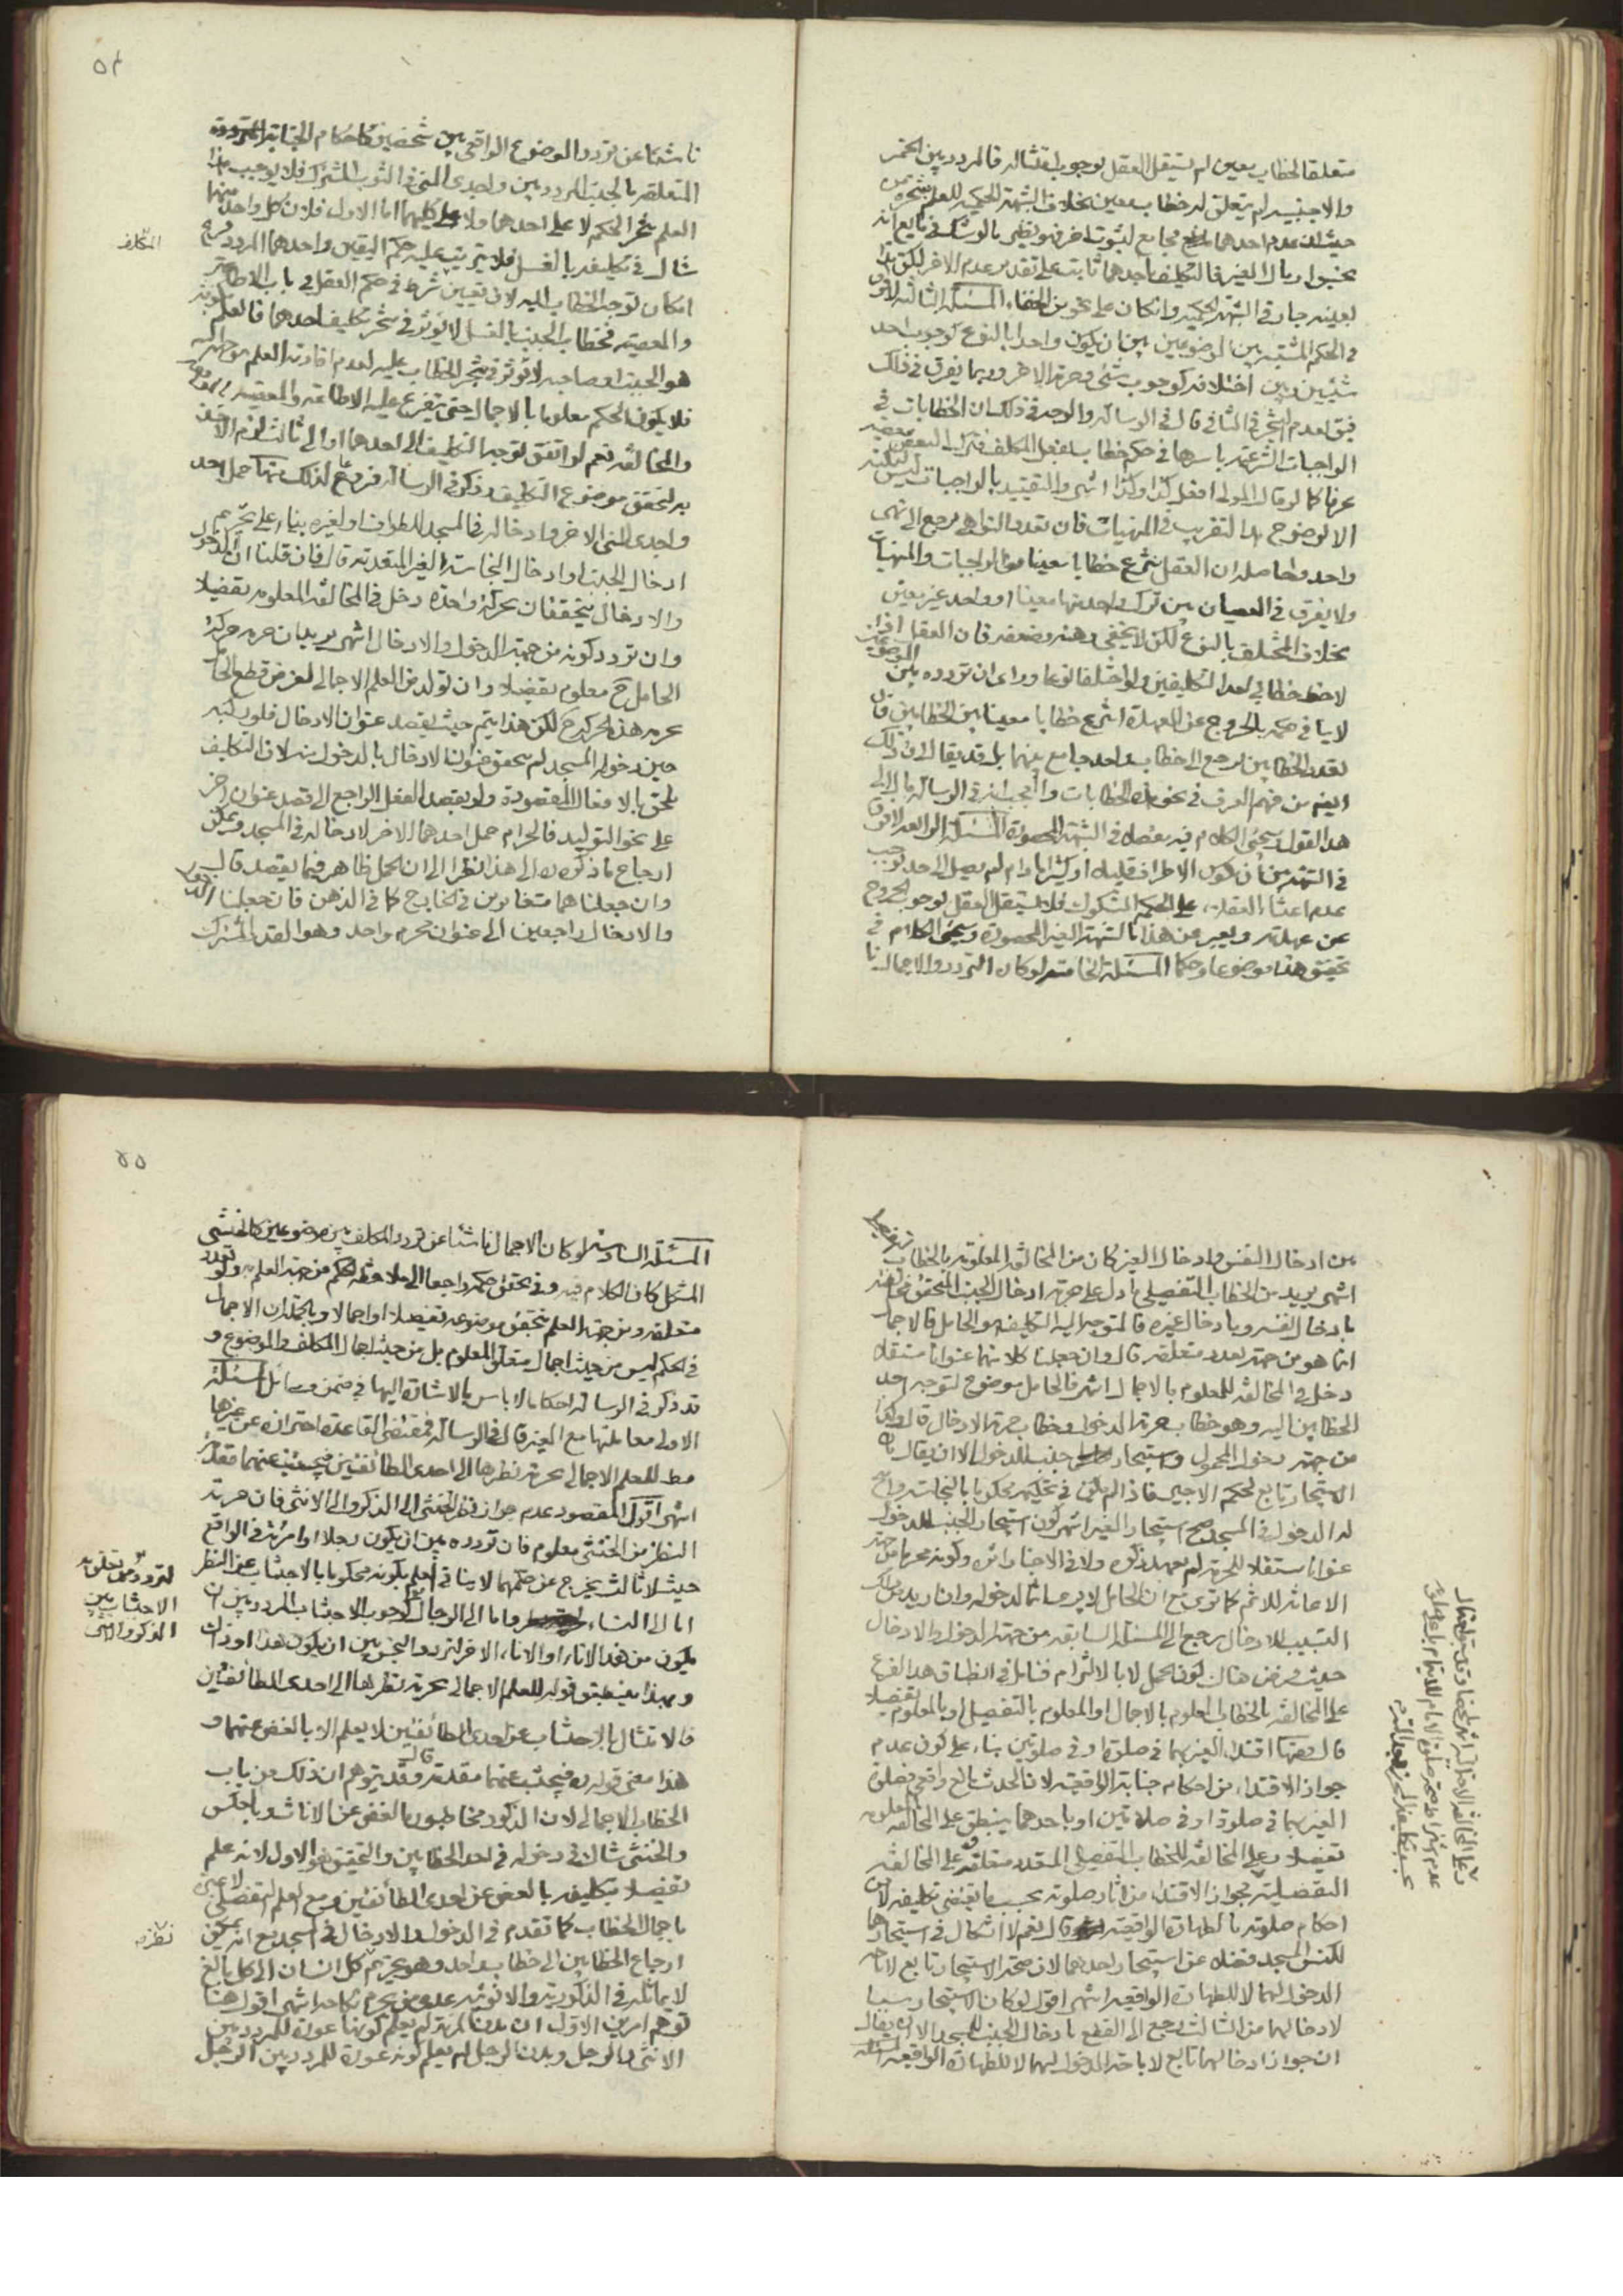 متعلقا لخطاب معين لم يستقل العقل بوجوب امتثاله فالمردد بين الخمر
والاجنبية لم يتعلق له خطاب معين بخلاف الشبهة الحكمية للعلم
حيث ان عدم احدهما مجامع لثبوت اخر فهو نظير بالوشك في بايع انه
لعينه جار في الشبهة الحكمية وان كان على نحو من الخفاء المسئلة الثالثة لا فرق
في الحكم المشتبه بين الموضوعين بين ان يكون واحدا بالنوع كوجوب احد
شيئين وبين اختلافه كوجوب شئ وحرمة الاخر وربما يفرق في ذلك
فيق بعدم التنجز في الثاني قال في الرسالة والوجه في ذلك ان الخطابات في
الواجبات الشرعية باسرها في حكم خطاب بفعل المكلف فترك البعض معصية
عرفا كما لو قال المولى افعل كذا وكذا انتهى والتقييد بالواجبات ليس لنكتة
الا لوضوح هذا التقريب في المنهيات فان تعدد النواهي يرجع الى نهى
واحد وحاصله ان العقل ينتزع خطابا معينا من الواجبات والمنهيات
ولا يفرق في العصيان بين ترك واحد منها معينا او واحد غير معين
بخلاف المختلف بالنوع لكن لا يخفى وهنه وضعفه فان العقل اذا
لاحظ خطابي احد التكليفين ولو اختلفا نوعا وراى ان تردده بين
لاينافي حكمه بالخروج عن العهدة انتزع خطابا معينا بين الخطابين فان
تعدد الخطابين يرجع الى خطاب واحد جامع بينهما بل قد يقال ان ذلك
ايضا من فهم العرف في نحو هذه الخطابات والعجب انه في الرسالة مال الى
هذا القول وسيجئ الكلام فيه مفصلا في الشبهة المحصورة المسئلة الرابعة لا فرق
في الشبهة بين ان تكون الاطراف قليلة او كثيرا ما دام لم يصل الى حد يوجب
عدم اعتناء العقلاء على الحكم المشكوك فلا يستقل العقل بوجوب الخروج
عن عهدته ويعبر عن هذا بالشبهة الغير المحصورة وسيجئ الكلام في
تحقيق هذا موضوعا وحكما المسئلة الخامسة لو كان التردد والاجمال نا
٥٤
ناشئا عن تردد الموضوع الواقعي بين شخصين كاحكام الجنابة
المتعلقة بالجنب المردد بين واجدي المني في الثوب المشترك فلا يوجب هذا
العلم تنجز الحكم لا على احدهما ولا على كليهما اما الاول فلان كل واحد منهما
شاك في تكليفه بالغسل فلا يترتب عليه حكم اليقين واحدهما المردد
المكلف
امكان توجه الخطاب اليه لان تعيين شرط في حكم العقل في باب الاطاعة
والمعصية فخطاب الجنب بالغسل لا يؤثر في تنجز تكليف احدهما فالعلم بكونه
هو الجنب او صاحبه لا يؤثر في تنجز الخطاب عليه لعدم افادته العلم بتوجهه اليه
فلا يكون الحكم معلوما بالاجمال حتى يتفرع عليه الاطاعة والمعصية
والمخالفة نعم لو اتفق توجه التكليف الى احدهما او الى ثالث لزم الاخذ
به لتحقق موضوع التكليف وذكر في الرسالة فروعا لذلك منها حمل احد
واجدي المني الاخر وادخاله في المسجد للطواف او لغيره بناء على تحريم
ادخال الجنب او ادخال النجاسة الغير المتعدية قال فان قلنا ان الدخول
والادخال يتحققان بحركة واحدة دخل في المخالفة المعلومة تفصيلا
وان تردد كونه من جهة الدخول والادخال انتهى يريد ان حرمة حركة
الحامل ح معلوم تفصيلا وان تولد من العلم الاجمالي لغرض قطع
حرمة هذه الحركة ح لكن هذا يتم حيث يقصد عنوان الادخال فلو
حين دخوله المسجد لم يتحقق عنوان الادخال بالدخول منه لان التكليف
يلحق بالافعال المقصودة ولو بقصد الفعل الراجع الى قصد عنوان اخر
على نحو التوليد فالحرام حمل احدهما الاخر لادخاله في المسجد ويمكن
ارجاع ما ذكره ره الى هذا نظرا الى ان الحمل ظاهر فيما يقصد قال
وان جعلناهما متغايرين في الخارج كما في الذهن فان جعلنا الدخول
والادخال راجعين الى عنوان محرم واحد وهو القدر المشترك
بين ادخال النفس وادخال الغير كان من المخالفة المعلومة بالخطاب
تفصيلا
انتهى يريد من الخطاب التفصيلي ما دل على حرمة ادخال الجنب المتحقق
بادخال النفس وبادخال غيره فالمتوجه اليه التكليف هو الحامل فالاجمال
انما هو من جهة تعدد متعلقه قال وان جعلنا كلا منهما عنوانا مستقلا
دخل في المخالفة للمعلوم بالاجمال انتهى فالحامل موضوع لتوجه احد
الخطابين اليه وهو خطاب حرمة الدخول وخطاب حرمة الادخال قال وكذا
من جهة دخول المحمول واستيجار جنب للدخول الا ان يقال بان
الاستيجار تابع لحكم الاجير فاذا لم يكن في تكليفه محكوما بالنجاسة وابيح
له الدخول في المسجد صح استيجار الغير انتهى كون استيجار الجنب للدخول
عنوانا مستقلا للحرمة لم يعهد ذكره ولا في الاخبار اثره وكونه محرما من جهة
الاعانة للاثم كما ترى ح ان الحامل لا يرى اثما لدخوله وان اريد من ذلك
التسبيب للادخال يرجع الى المسئلة السابقة من جهة الدخول والادخال
حيث فرض هناك كون الحمل لا بالالتزام فتامل في انطباق هذا الفرع
على المخالفة بالخطاب المعلوم بالاجمال او المعلوم بالتفصيل او بالمعلوم تفصيلا
قال ومنها اقتداء الغير بهما في صلوة او في صلوتين بناء على كون عدم
جواز الاقتداء من احكام جنابة الواقعية لان الحدث مانع واقعي فصلوة
الغير بهما في صلوة او في صلاتين او باحدهما ينطبق على المخالفة المعلومة
تفصيلا وعلى المخالفة للخطاب التفصيلي المتعدد متعلقه على المخالفة
التفصيلية فجواز الاقتداء من اثار صلوته بحسب ما يقتضي تكليفه لا من
احكام صلوته بالطهارة الواقعية قال نعم لا اشكال في استيجارهما
لكنس المسجد فضلا عن استيجار احدهما لان صحة الاستيجار تابع لاباحة
الدخول لهما لا للطهارة الواقعية انتهى اقول لو كان الاستيجار سببا
لادخالهما من الثالث يرجع الى القطع بادخال الجنب للمسجد الا ان يقال
ان جواز ادخالهما تابع لاباحة الدخول لهما لا للطهارة الواقعية المسئلة
وعلى المخالفة الاحتمالية
عدم اشتراط صحة صلوة الامام للايتمام
٥٥
المسئلة السادسة لو كان الاجمال ناشئا عن تردد المكلف بين موضوعين كالخنثى
المشكل كان الكلام فيه وفي تحقق حكمه راجعا الى ملاحظة الحكم من جهة العلم وتعدد
متعلقه ومن جهة العلم بتحقق موضوعه تفصيلا او اجمالا وبالجملة ان الاجمال
في الحكم ليس من حيث اجمال متعلق المعلوم بل من حيث اجمال المكلف والموضوع و
قد ذكر في الرسالة احكاما لا باس بالاشارة اليها في ضمن مسائل المسئلة
الاولى معاملتها مع الغير قال في الرسالة فمقتضى القاعدة احترازه عن غيرها
مط للعلم الاجمالي بحرمة نظرها الى احدى الطائفتين فيجتنب عنهما مقدمة
انتهى اقول المقصود عدم جواز نظر الخنثى الى الذكر والى الانثى فان حرمة
النظر من الخنثى معلوم فان تردده بين ان يكون رجلا او امرئة في الواقع
حيث لا ثالث يخرج عن حكمهما لا ينافي العلم بكونه محكوما بالاجتناب عن النظر
اما الى النساء واما الى الرجال كوجوب الاجتناب المردد بين ان
لتردده في تعلق
الاجتناب بين
الذكر والانثى
يكون من هذا الاناء او الاناء الاخر لتردد النجس بين ان يكون هذا او ذاك
وبهذا ينطبق قوله للعلم الاجمالي بحرمة نظرها الى احدى الطائفتين
فالامتثال بالاجتناب عن احدى الطائفتين لا يعلم الا بالغض عنهما و
هذا معنى قوله ره فيجتنب عنهما مقدمة قال وقد يتوهم ان ذلك من باب
الخطاب الاجمالي لان الذكور مخاطبون بالغض عن الاناث وبالعكس
والخنثى شاك في دخوله في احد الخطابين والتحقيق هو الاول لانه علم
تفصيلا بتكليفه بالغض عن احدى الطائفتين ومع العلم التفصيلي لا عبرة
باجمال الخطاب كما تقدم في الدخول والادخال في المسجد مع انه يمكن
ارجاع الخطابين الى خطاب واحد وهو تحريم كل انسان الى كل بالغ
نظره
لا يماثله في الذكورية والانوثية عدى من يحرم نكاحه انتهى اقول هنا
توهم امرين الاول ان بدن المرئة لم يعلم كونها عورة للمردد بين
الانثى والرجل وبدن الرجل لم يعلم كونه عورة للمردد بين الرجل